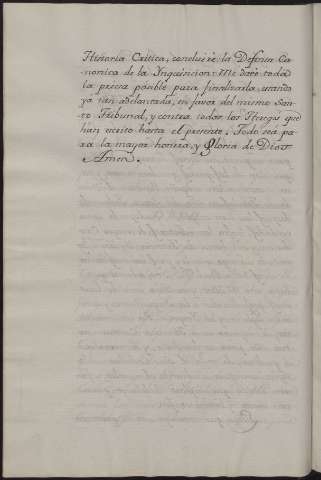 Historia Critica, concluiré la Defensa Ca-
nonica de la Inquisicion. Me daré toda
la priesa posible para finalizarla, estando
ya tan adelantada, en favor del mismo San-
to Tribunal, y contra todos los Hereges que
han escrito hasta el presente. Todo sea pa-
ra la mayor honrra, y Gloria de Dios
Amen.